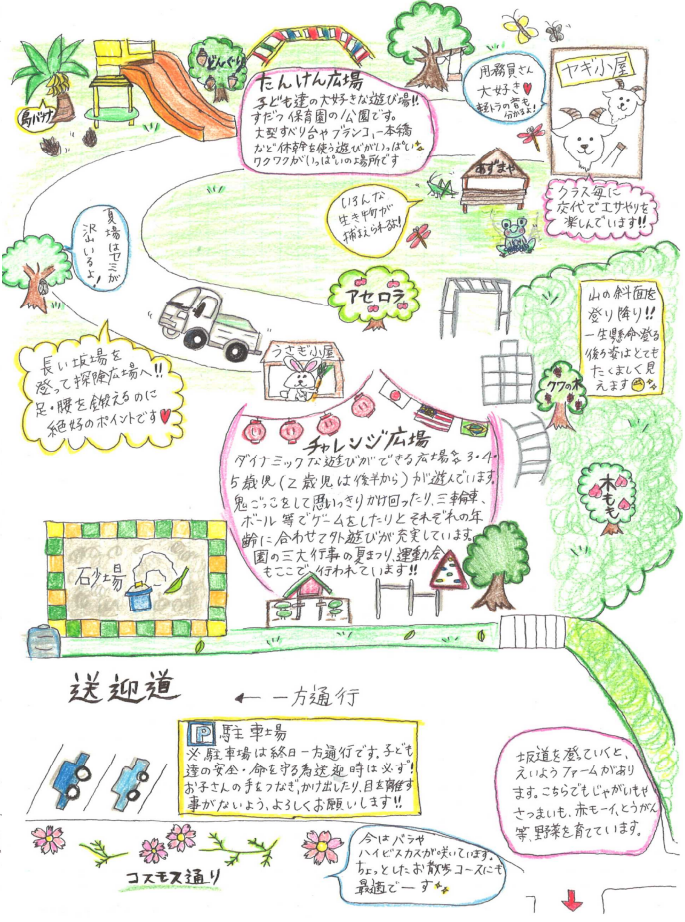 島バナナ
どんぐり
たんけん広場
子ども達の大好きな遊び場!!
すだつ保育園の公園です。
大型すべり台やブランコ、一本橋
など体幹を使う遊びがいっぱい
ワクワクがいっぱいの場所です
用務員さん
大好き♥
軽トラの音も
分かるよ!
ヤギ小屋
クラス毎に
交代でエサやりを
楽しんでいます!!
あずまや
いろんな
生き物が
捕まえられるよ!
夏場はセミが
沢山いるよ!
アセロラ
山の斜面を
登り降り!!
一生懸命登る
後ろ姿はとても
たくましく見
えます
クワの木
長い坂場を
登って探険広場へ!!
足・腰を鍛えるのに
絶好のポイントです♥
うさぎ小屋
チャレンジ広場
ダイナミックな遊びができる広場で、3・4・
5歳児(2歳児は後半から)が遊んでいます。
鬼ごっこをして思いっきりかけ回ったり、三輪車、
ボール等でゲームをしたりとそれぞれの年
齢に合わせて外遊びが充実しています。
園の三大行事の夏まつり、運動会
もここで行われています!!
木もも
砂場
送迎道
← 一方通行
P 駐車場
※駐車場は終日一方通行です。子ども
達の安全・命を守る為送迎時は必ず!
お子さんの手をつなぎ、かけ出したり、目を離す
事がないよう、よろしくお願いします!!
坂道を登っていくと、
えいようファームがあり
ます。こちらでもじゃがいもや
さつまいも、赤モーイ、とうがん
等、野菜を育てています。
コスモス通り
今はバラや
ハイビスカスが咲いています。
ちょっとしたお散歩コースにも
最適でーす